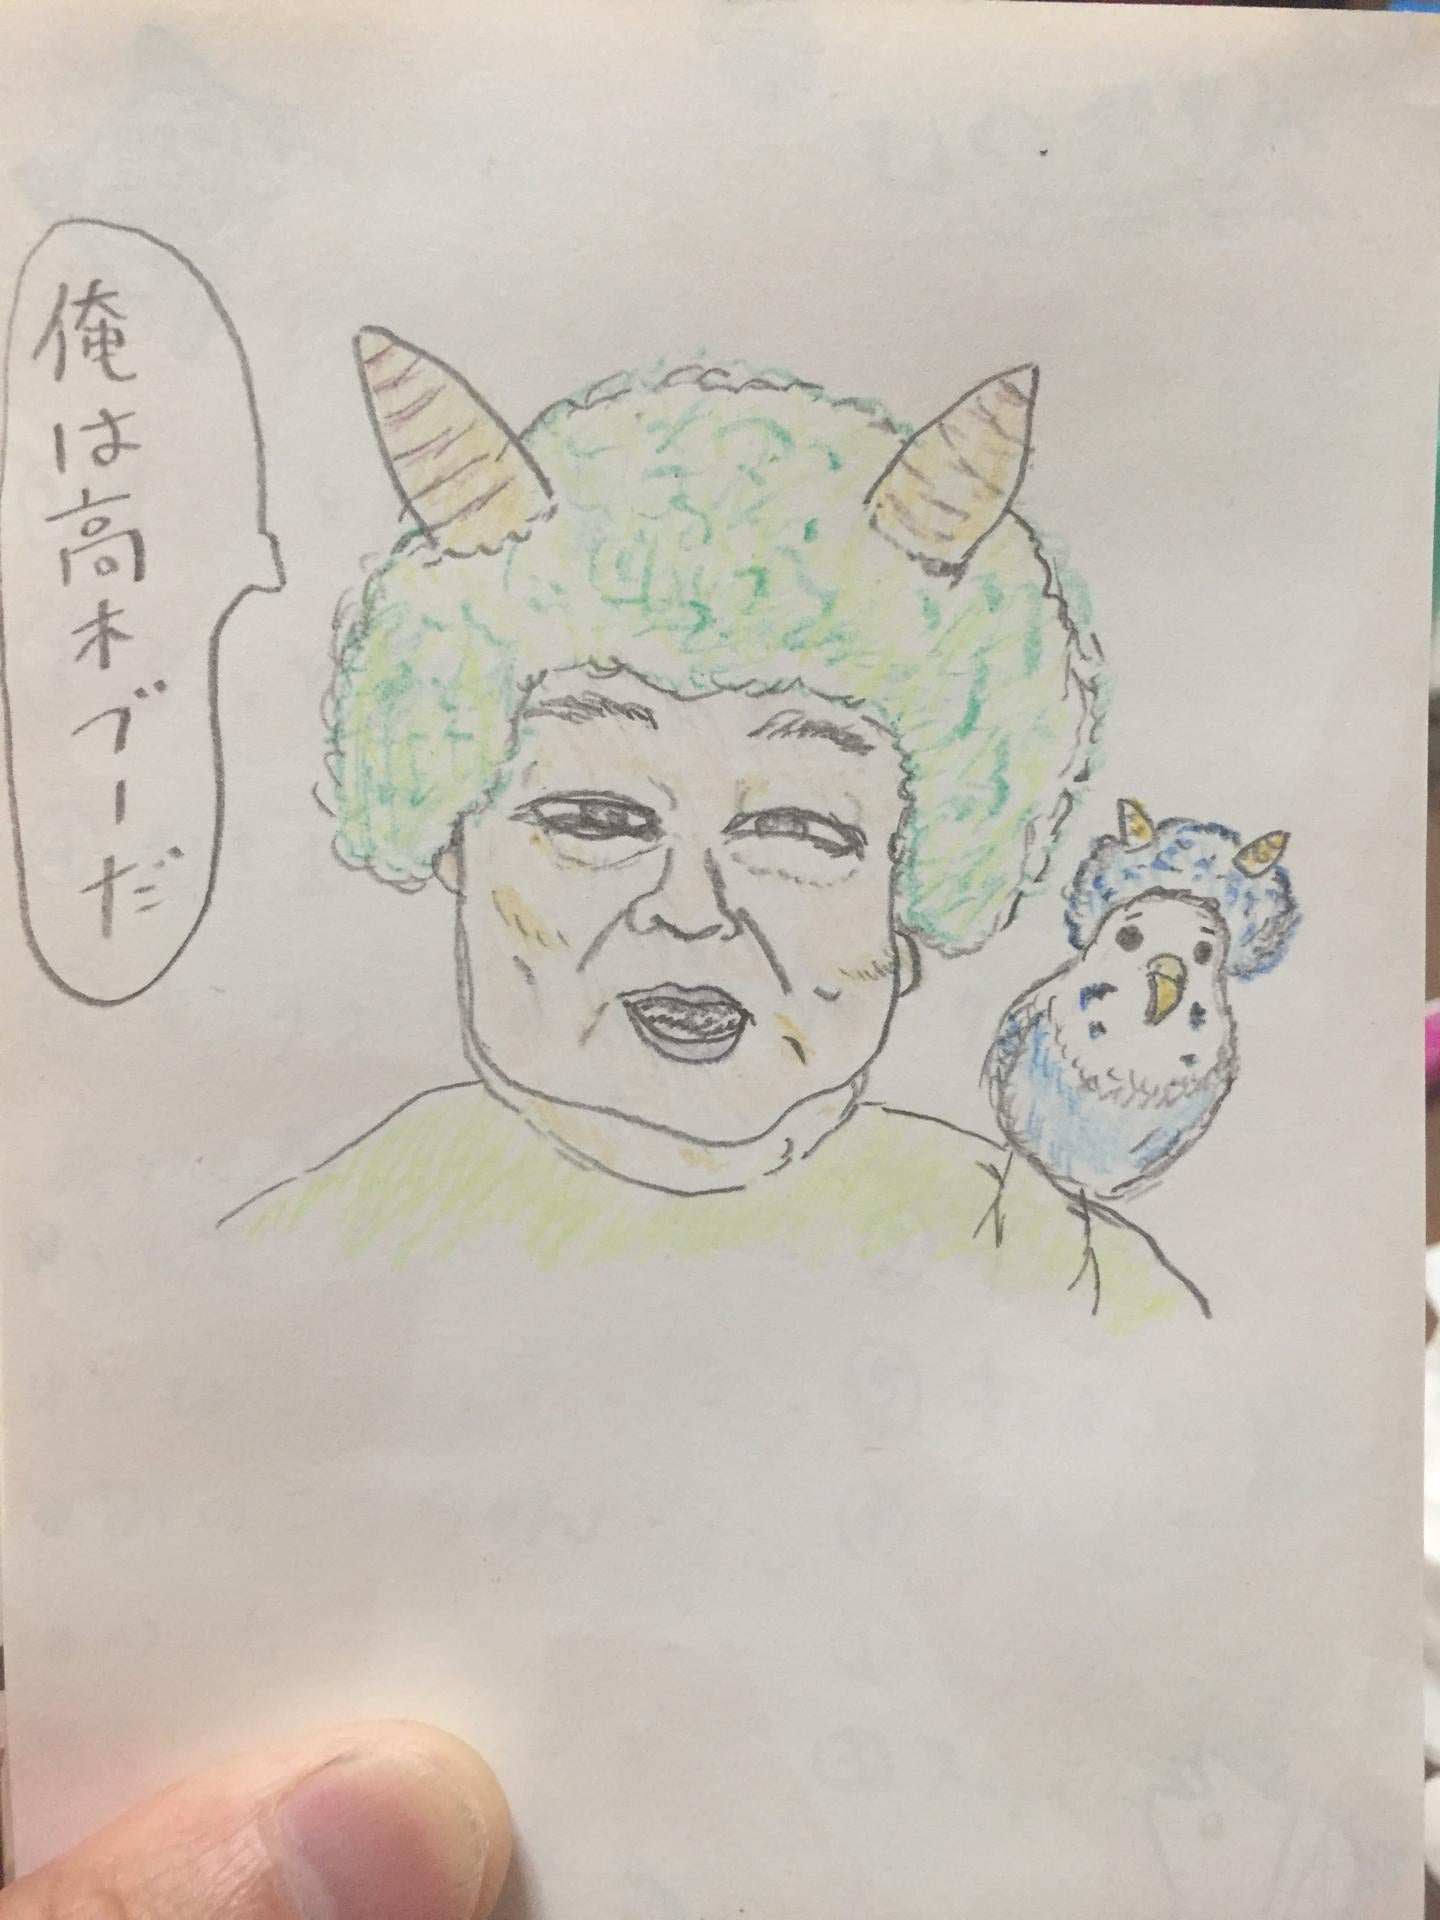 俺は高木ブーだ